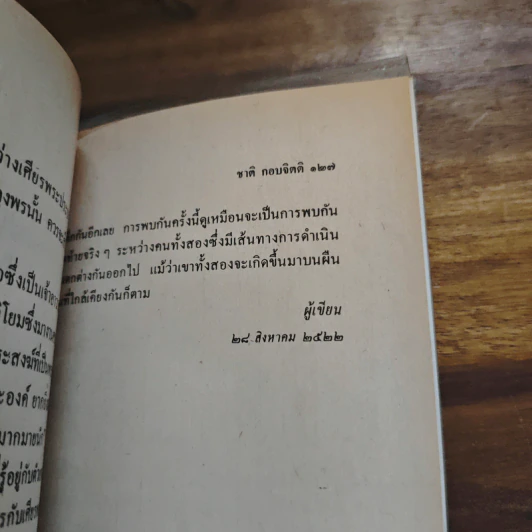 ่างเศียรพระ
งพรนั้น
ซึ่งเป็นเจ้า
โยมซึ่งมา
ระสงฆ์ที่เป็น
ะองค์
มากมาย
รู้อยู่กับตัว
รกับเศียร
ชาติ กอบจิตติ ๑๒๗
กันอีกเลย การพบกันครั้งนี้ดูเหมือนจะเป็นการพบกัน
ท้ายจริง ๆ ระหว่างคนทั้งสองซึ่งมีเส้นทางการดำเนิน
แตกต่างกันออกไป แม้ว่าเขาทั้งสองจะเกิดขึ้นมาบนผืน
ที่ใกล้เคียงกันก็ตาม
ผู้เขียน
๒๘ สิงหาคม ๒๕๒๒